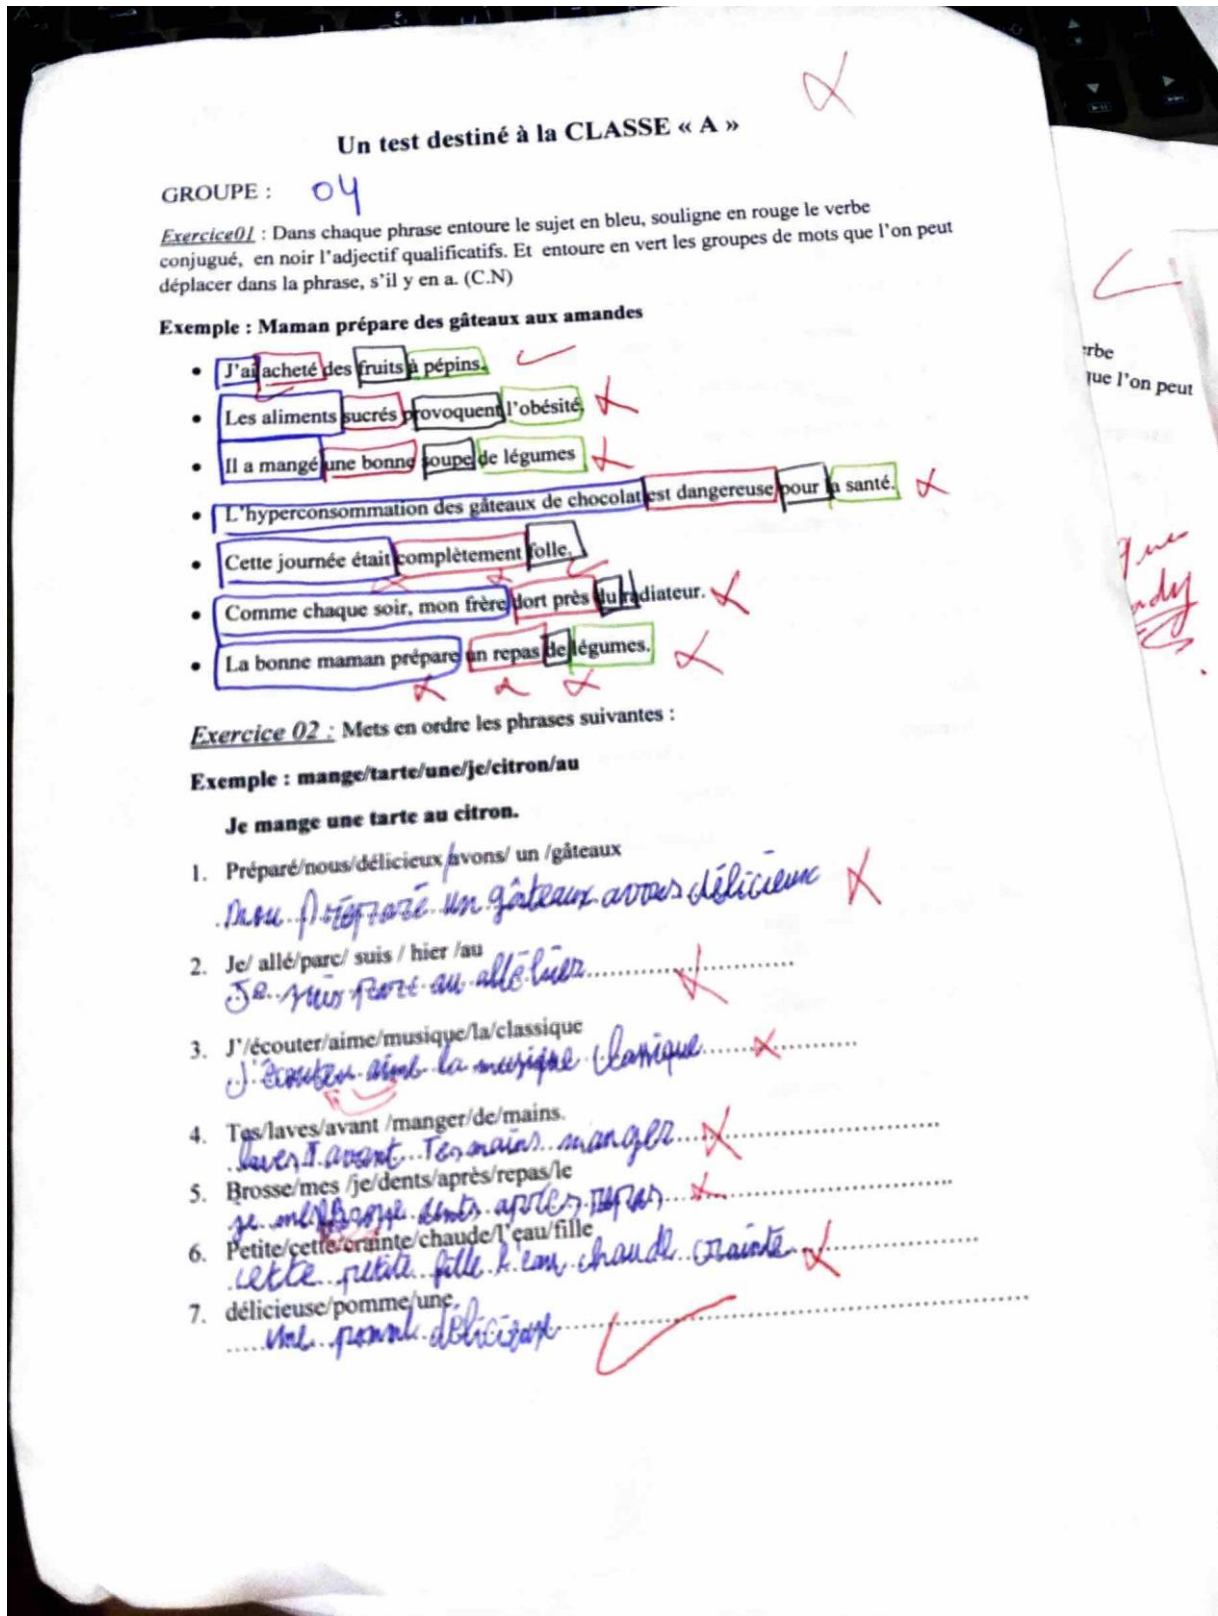 Un test destiné à la CLASSE « A »
GROUPE : 04
Exercice01 : Dans chaque phrase entoure le sujet en bleu, souligne en rouge le verbe
conjugué, en noir l'adjectif qualificatifs. Et entoure en vert les groupes de mots que l'on peut
déplacer dans la phrase, s'il y en a. (C.N)
Exemple : Maman prépare des gâteaux aux amandes
• J'ai acheté des fruits à pépins.
• Les aliments sucrés provoquent l'obésité.
• Il a mangé une bonne soupe de légumes
• L'hyperconsommation des gâteaux de chocolat est dangereuse pour la santé.
• Cette journée était complètement folle.
• Comme chaque soir, mon frère dort près du radiateur.
• La bonne maman prépare un repas de légumes.
Exercice 02 : Mets en ordre les phrases suivantes :
Exemple : mange/tarte/une/je/citron/au
Je mange une tarte au citron.
1. Préparé/nous/délicieux/avons/ un /gâteaux
nou préparé un gâteaux avons délicieux
2. Je/ allé/parc/ suis / hier /au
Je suis parc au allé hier
3. J'/écouter/aime/musique/la/classique
J'écouter aime la musique classique
4. Tes/laves/avant /manger/de/mains.
laves avant Tes mains manger
5. Brosse/mes /je/dents/après/repas/le
je mes Brosse dents après repas
6. Petite/cette/crainte/chaude/l'eau/fille
cette petite fille l'eau chaude crainte
7. délicieuse/pomme/une
une pomme délicieuse
erbe
que l'on peut